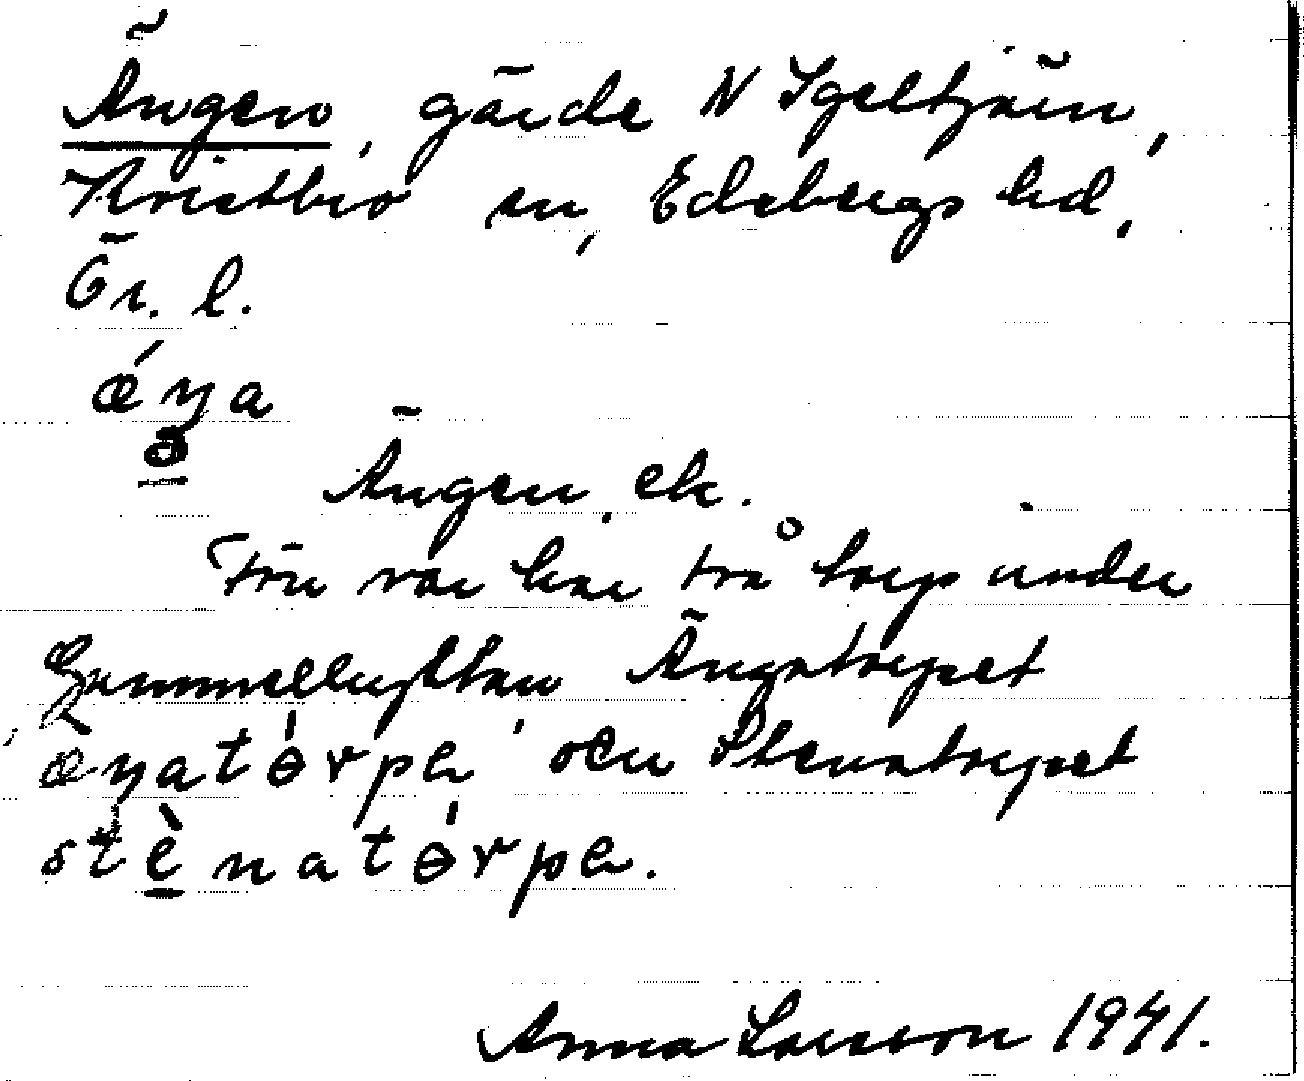 Ängen, gärde N Igeltjärn,
Kvistbro sn, Edsbergs hd,
Ör. l.
ǽŋa
Ängen, ek.
Förr var här två torp under
Gammelhyttan, Ängatorpet
æŋatɵ́rpa, och Stenatorpet
stènatɵ́rpa.
Anna Larsson 1941.